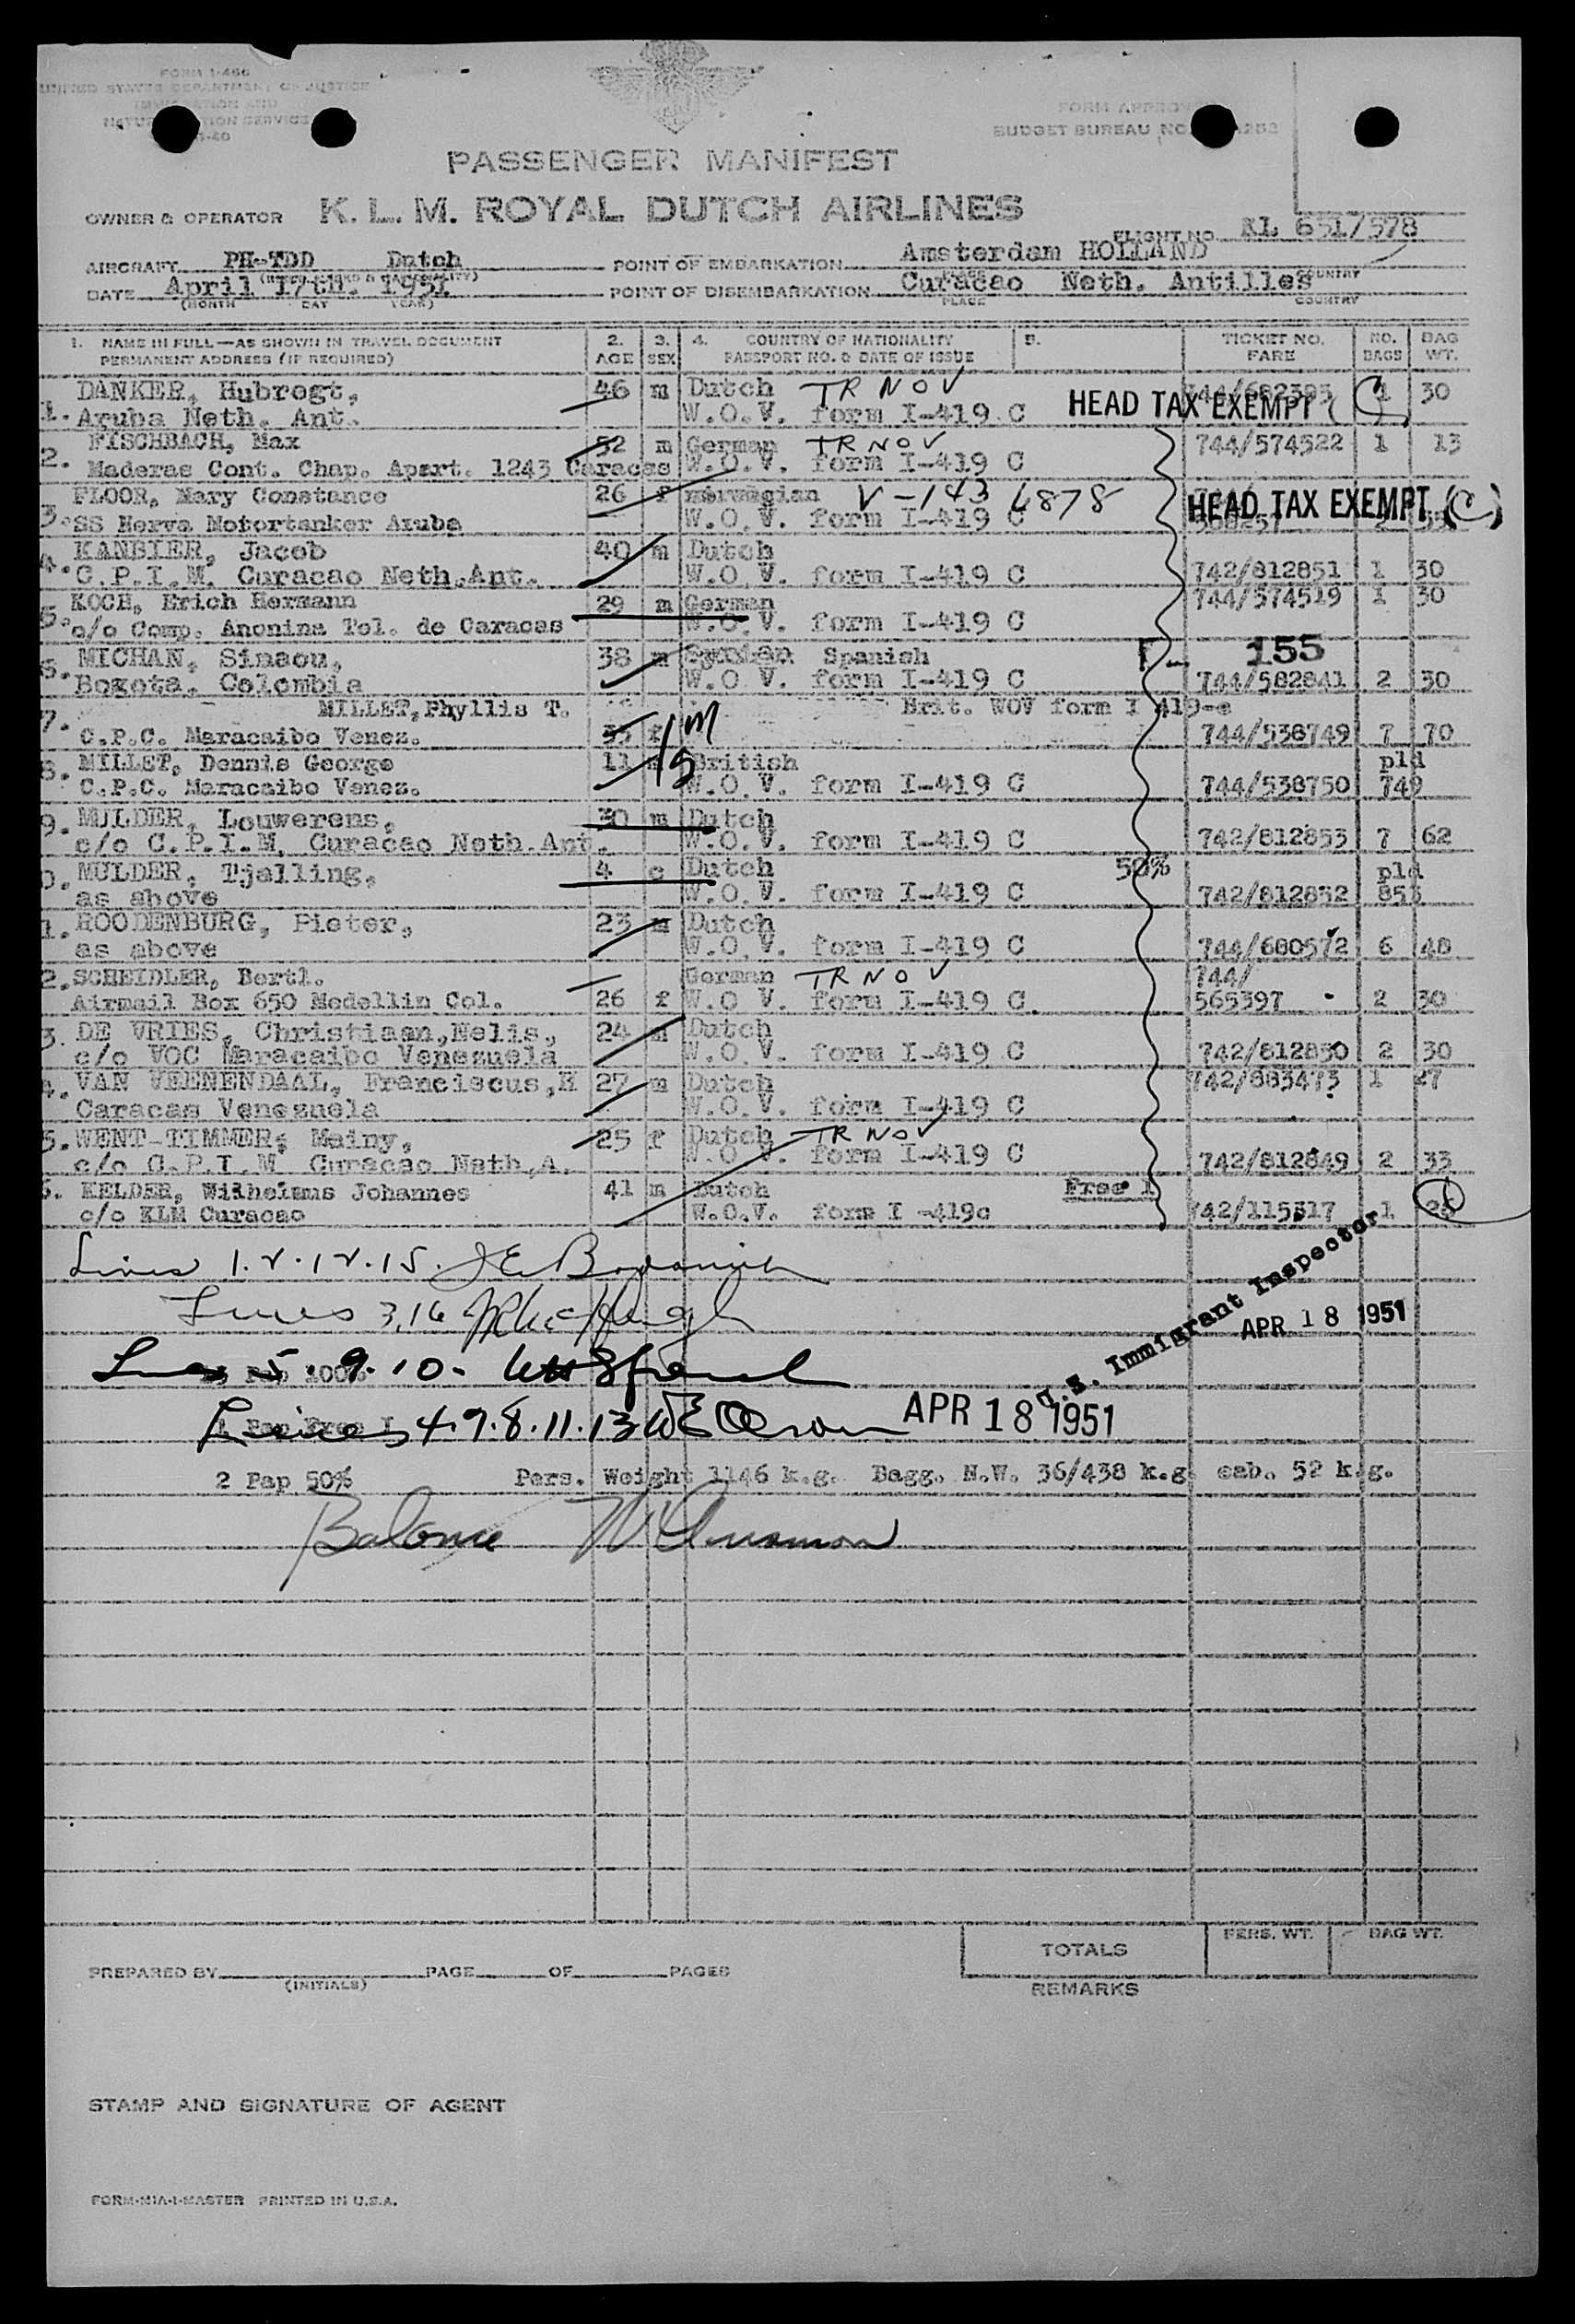 FORM I-466
UNITED STATES DEPARTMENT OF JUSTICE
IMMIGRATION AND
SERVICE
FORM
BUDGET BUREAU NO.
PASSENGER MANIFEST
OWNER & OPERATOR K. L. M. ROYAL DUTCH AIRLINES
FLIGHT NO. KL 651/578
AIRCRAFT PH-TDD Dutch POINT OF EMBARKATION Amsterdam HOLLAND
DATE April 17th. 1951 POINT OF DISEMBARKATION Curacao Neth. Antilles
(MONTH DAY YEAR) PLACE COUNTRY
1. NAME IN FULL—AS SHOWN IN TRAVEL DOCUMENT 2. 3. 4. COUNTRY OF NATIONALITY 5. TICKET NO. NO. BAG
PERMANENT ADDRESS (IF REQUIRED) AGE SEX PASSPORT NO. & DATE OF ISSUE FARE BAGS WT.
DANKER, Hubregt, 46 m Dutch TR NOV 1 30
1. Aruba Neth. Ant. W.O.V. form I-419 C HEAD TAX EXEMPT (C)
FISCHBACH, Max 52 m German TR NOV 744/574522 1 13
2. Maderas Cont. Chap. Apart. 1243 Caracas W.O.V. form I-419 C
FLOOR, Mary Constance 26 f Norwegian V-143 6878 HEAD TAX EXEMPT (C)
3. SS Herva Motortanker Aruba W.O.V. form I-419 C
4. KANBIER, Jacob 40 m Dutch
C.P.I.M. Curacao Neth.Ant. W.O.V. form I-419 C 742/812851 1 30
KOCH, Erich Hermann 29 m German 744/574519 1 30
5. c/o Comp. Anonina Tel. de Caracas W.O.V. form I-419 C
MICHAN, Simaou, 38 m Spanish 155
6. Bogota, Colombia W.O.V. form I-419 C 744/582841 2 30
MILLET, Phyllis T. Brit. WOV form I 419-c
7. C.P.C. Maracaibo Venez. 35 f m 744/538749 7 70
8. MILLET, Dennis George 11 m British pld
C.P.C. Maracaibo Venez. W.O.V. form I-419 C 744/538750 749
9. MULDER, Louwerens, 30 m Dutch
c/o C.P.I.M. Curacao Neth.Ant. W.O.V. form I-419 C 742/812853 7 62
0. MULDER, Tjalling, 4 c Dutch 50% pld
as above W.O.V. form I-419 C 742/812852 853
1. ROODENBURG, Pieter, 23 m Dutch
as above W.O.V. form I-419 C 744/680572 6 48
2. SCHEIDLER, Bertl. German TR NOV 744/
Airmail Box 650 Medellin Col. 26 f W.O V. form I-419 C. 565397 2 30
3. DE VRIES, Christiaan,Nelis, 24 m Dutch
c/o VOC Maracaibo Venezuela W.O.V. form I-419 C 742/812850 2 30
4. VAN VEENENDAAL, Franciscus,H 27 m Dutch 742/883473 1 27
Caracas Venezuela W.O.V. form I-419 C
5. WENT-TIMMER, Meiny, 25 f Dutch TR NOV
c/o C.P.I.M Curacao Neth.A. W.O V. form I-419 C 742/812849 2 33
6. KELDER, Wilhelmus Johannes 41 m Dutch Free 1
c/o KLM Curacao W.O.V. form I -419c 742/115317 1
Lines 1.2.12.15.
Lines 3,16
U.S. Immigrant Inspector
APR 18 1951
Lines 5. 9. 10.
Lines 4.7.8.11.13 APR 18 1951
2 Pap 50% Pers. Weight 1146 k.g. Bagg. N.W. 36/438 k.g. cab. 52 k.g.
TOTALS PERS. WT. BAG WT.
PREPARED BY PAGE OF PAGES
(INITIALS) REMARKS
STAMP AND SIGNATURE OF AGENT
FORM-MIA-1-MASTER PRINTED IN U.S.A.